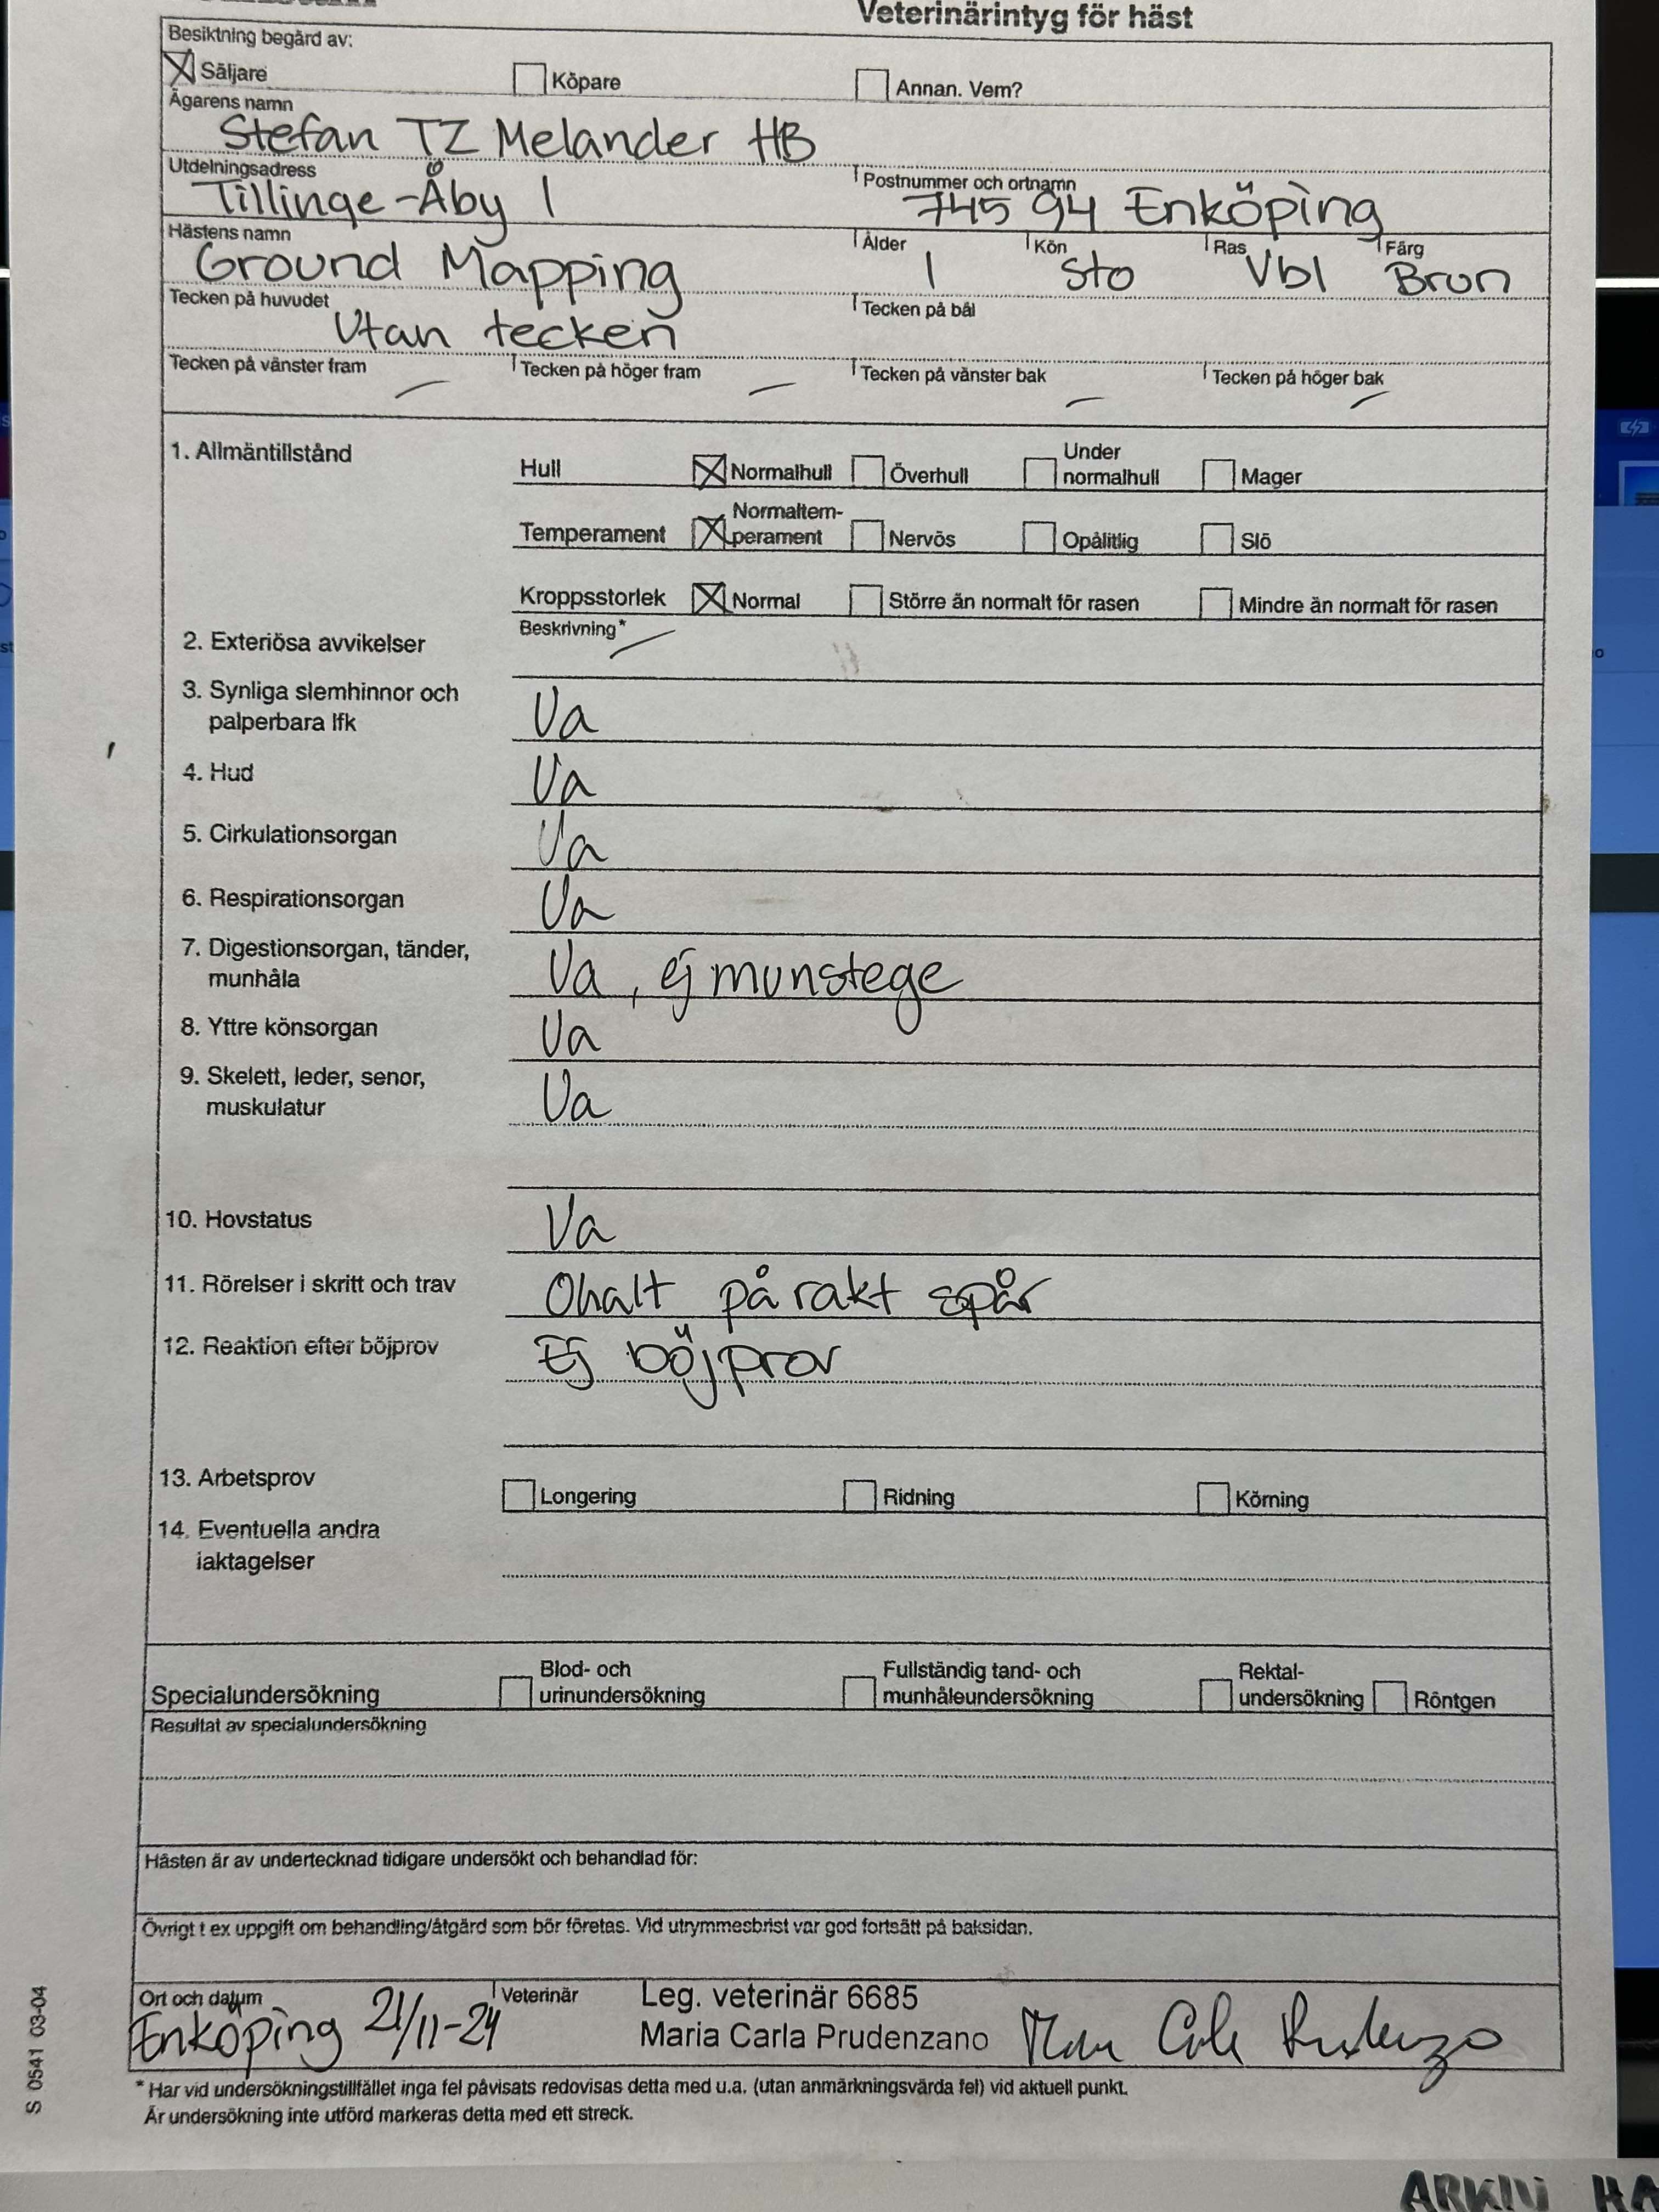 Veterinärintyg för häst
Besiktning begärd av:
Säljare Köpare Annan. Vem?
Ägarens namn
Stefan TZ Melander HB
Utdelningsadress Postnummer och ortnamn
Tillinge-Åby 1 745 94 Enköping
Hästens namn Ålder Kön Ras Färg
Ground Mapping 1 Sto Vbl Brun
Tecken på huvudet Tecken på bål
Utan tecken
Tecken på vänster fram Tecken på höger fram Tecken på vänster bak Tecken på höger bak
1. Allmäntillstånd
Hull Normalhull Överhull Under normalhull Mager
Temperament Normaltem-perament Nervös Opålitlig Slö
Kroppsstorlek Normal Större än normalt för rasen Mindre än normalt för rasen
Beskrivning*
2. Exteriösa avvikelser
3. Synliga slemhinnor och
palperbara lfk Ua
4. Hud Ua
5. Cirkulationsorgan Ua
6. Respirationsorgan Ua
7. Digestionsorgan, tänder,
munhåla Ua, ej munstege
8. Yttre könsorgan Ua
9. Skelett, leder, senor,
muskulatur Ua
10. Hovstatus Ua
11. Rörelser i skritt och trav Ohalt på rakt spår
12. Reaktion efter böjprov Ej böjprov
13. Arbetsprov Longering Ridning Körning
14. Eventuella andra
iaktagelser
Specialundersökning Blod- och urinundersökning Fullständig tand- och munhåleundersökning Rektal-undersökning Röntgen
Resultat av specialundersökning
Hästen är av undertecknad tidigare undersökt och behandlad för:
Övrigt t ex uppgift om behandling/åtgärd som bör företas. Vid utrymmesbrist var god fortsätt på baksidan.
Ort och datum Veterinär Leg. veterinär 6685
Enköping 21/11-24 Maria Carla Prudenzano
* Har vid undersökningstillfället inga fel påvisats redovisas detta med u.a. (utan anmärkningsvärda fel) vid aktuell punkt.
Är undersökning inte utförd markeras detta med ett streck.
S 0541 03-04
ARKIV HA